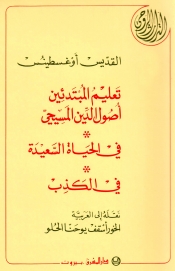 التراث الروحي
القديس أوغسطينس
تعليم المبتدئين
أصول الدين المسيحي
*
في الحياة السعيدة
*
في الكذب
نقله إلى العربية
الخور أسقف يوحنا الحلو
دار المشرق بيروت